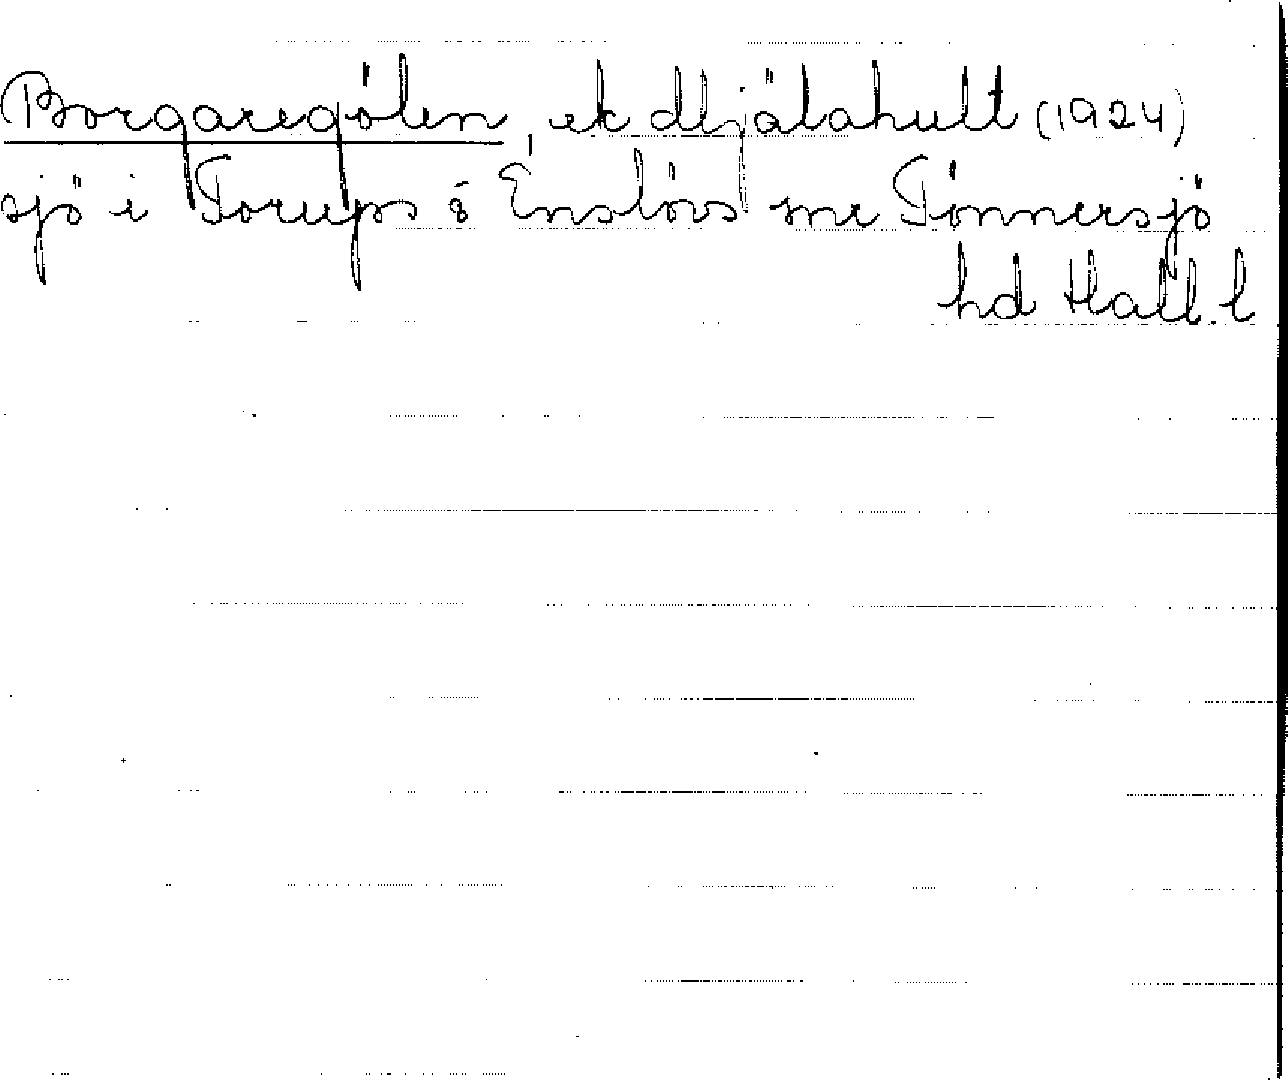 Borgaregölen, ek Mjälahult (1924)
sjö i Torups o Enslövs snr Tönnersjö
hd Hall. l